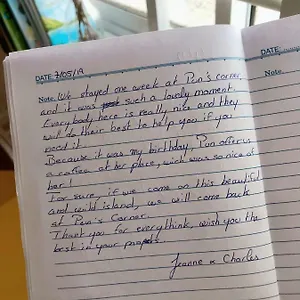 DATE: 7/05/19
Note. We stayed one week at Pon's corner,
and it was such a lovely moment.
Everybody here is really nice and they
will do their best to help you if you
need it.
Because it was my birthday, Pon offer us
a coffee at her place, wich was so nice of
her!
For sure, if we come on this beautiful
and wild island, we will come back
at Pon's Corner.
Thank you for everythink, wish you the
best in your
Jeanne & Charles
DATE:
Note.